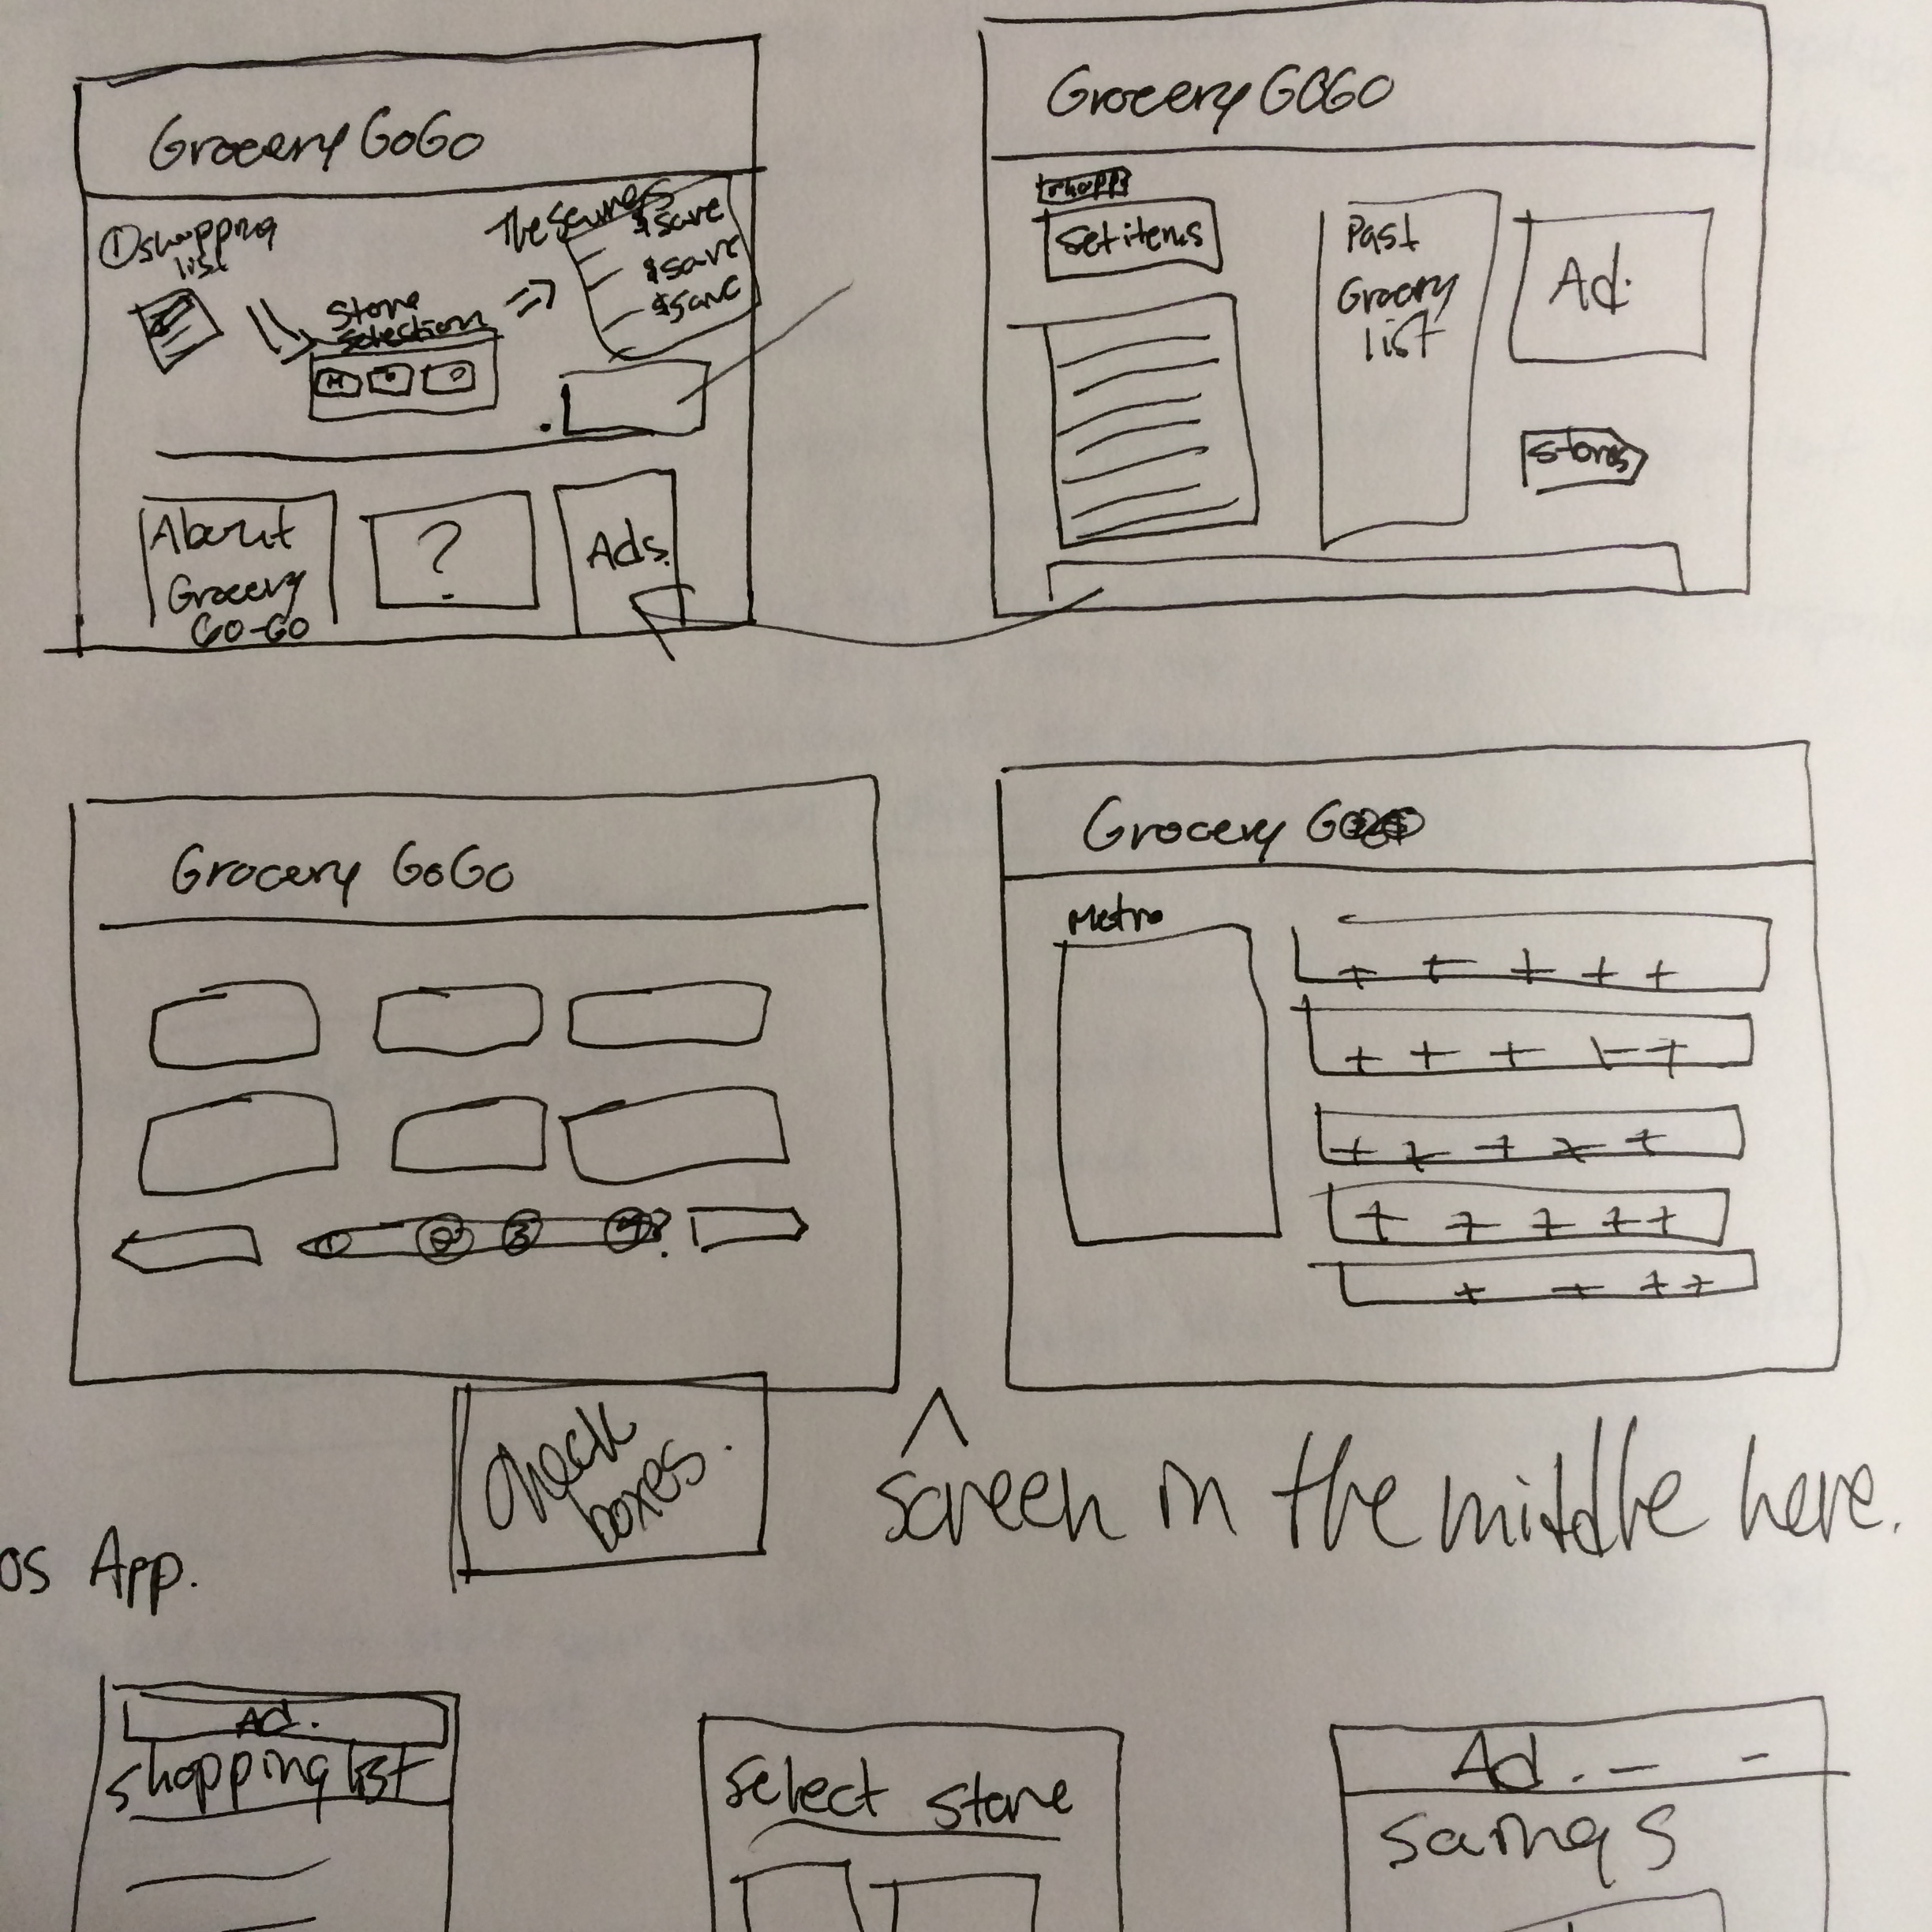 Grocery GoGo
① shopping
list
Store
Selection
The Savings
$save
$save
$save
About
Grocery
GO-GO
?
Ads.
Grocery GOGO
Set items
Past
Grocery
list
Ad.
Stores
Grocery GoGo
① ② ③ ④ ?
Check
boxes.
Grocery
Metro
+ + + + +
+ + + + +
+ + + + +
+ + + + +
+ + + +
screen in the middle here.
OS App.
Ad.
shopping list
Select store
Ad. — -
Savings